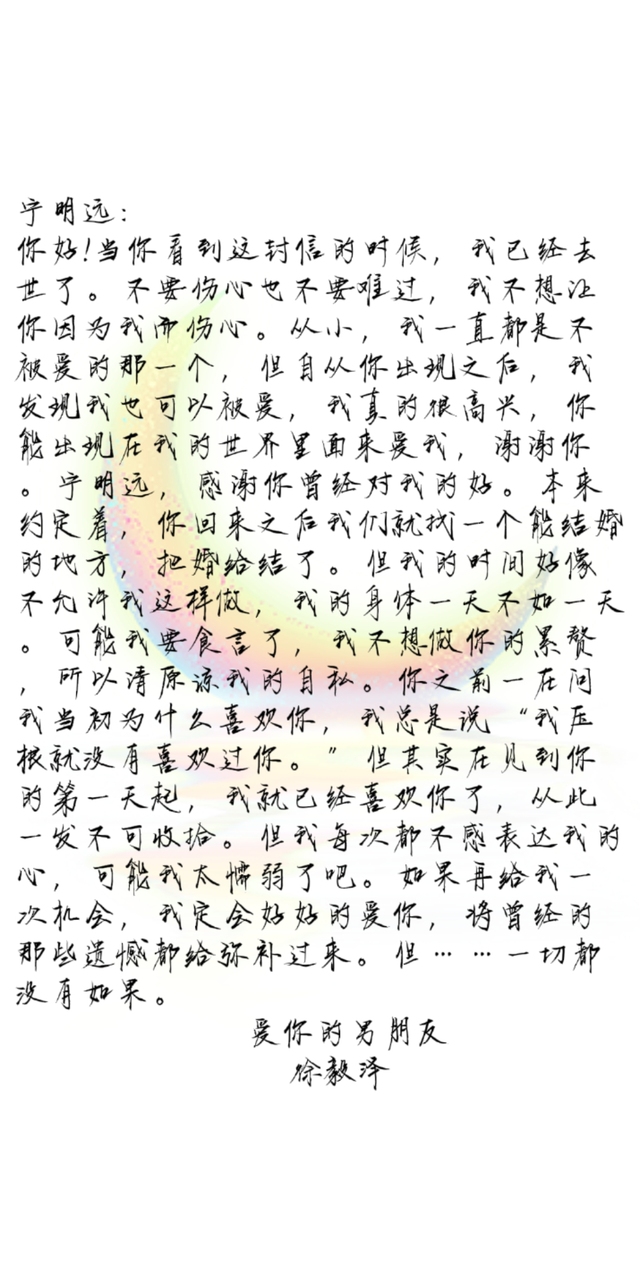 宁明远：
你好！当你看到这封信的时候，我已经去
世了。不要伤心也不要难过，我不想让
你因为我而伤心。从小，我一直都是不
被爱的那一个，但自从你出现之后，我
发现我也可以被爱，我真的很高兴，你
能出现在我的世界里面来爱我，谢谢你
。宁明远，感谢你曾经对我的好。本来
约定着，你回来之后我们就找一个能结婚
的地方，把婚给结了。但我的时间好像
不允许我这样做，我的身体一天不如一天
。可能我要食言了，我不想做你的累赘
，所以请原谅我的自私。你之前一在问
我当初为什么喜欢你，我总是说“我压
根就没有喜欢过你。”但其实在见到你
的第一天起，我就已经喜欢你了，从此
一发不可收拾。但我每次都不感表达我的
心，可能我太懦弱了吧。如果再给我一
次机会，我定会好好的爱你，将曾经的
那些遗憾都给弥补过来。但……一切都
没有如果。
爱你的男朋友
徐毅泽